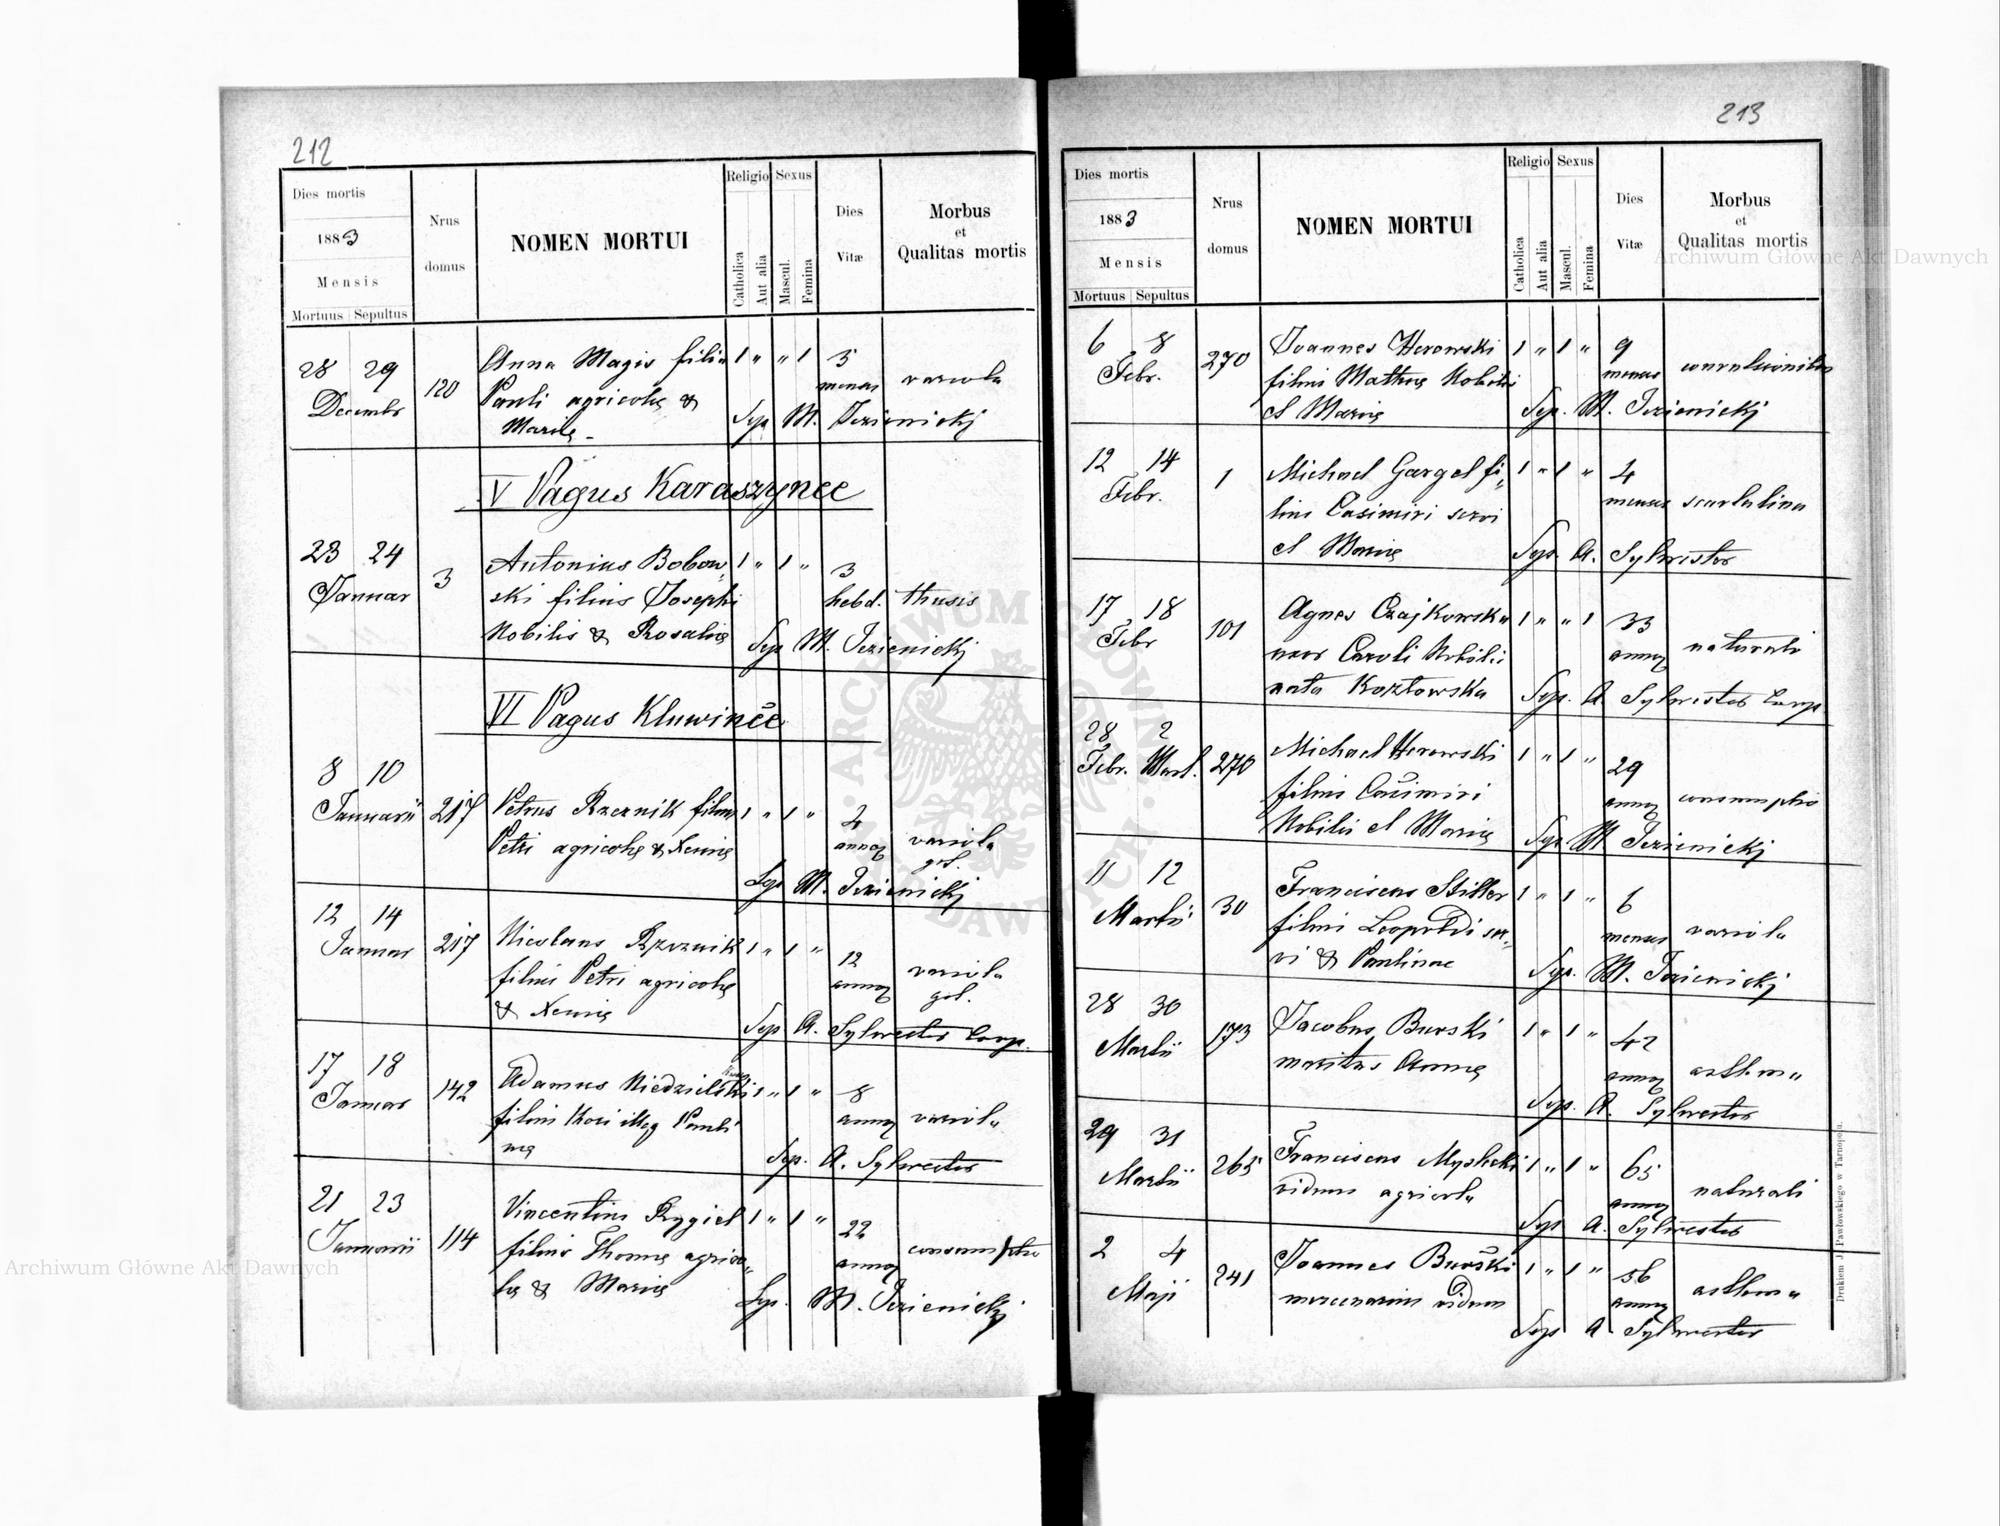 212
Dies mortis
1883
Mensis
Mortuus Sepultus
Nrus
domus
NOMEN MORTUI
Religio
Catholica
Aut alia
Sexus
Mascul.
Femina
Dies
Vitæ
Morbus
et
Qualitas mortis
28 29
Decembr
120
Anna Magis filia
Pauli agricolę &
Marię
1 " " 1
5
menses
variola
Sep M. Jezienickj
V Vagus Karaszynce
23 24
Januar
3
Antonius Bobow
ski filius Josephi
Nobilis & Rosalię
1 " 1 "
3
hebd.
thusis
Sep M. Jezienickj
VI Pagus Kluwince
8 10
Januarii
217
Petrus Rzeznik filius
Petri agricolę & Xenię
1 " 1 "
annor
variola
Sep M. Jezienickj
12 14
Januar
217
Nicolaus Rzeznik
filius Petri agricolę
& Xenię
1 " 1 "
12
annor
variola
Sep A. Sylwester Coop.
17 18
Januar
142
Adamus Niedzielski
filius
1 " 1 "
8
annor
variola
Sep. A. Sylwester
21 23
Januarii
114
Vincentius Rygiel
filius Thomę agrico
lę & Marię
1 " 1 "
22
annor
consumptio
Sep. M. Jezienickj
213
Dies mortis
1883
Mensis
Mortuus Sepultus
Nrus
domus
NOMEN MORTUI
Religio
Catholica
Aut alia
Sexus
Mascul.
Femina
Dies
Vitæ
Morbus
et
Qualitas mortis
6 8
Febr.
270
Joannes Herowski
filius Nobilis
et Marię
1 " 1 "
9
menses
convulsionibus
Sep. M. Jezienickj
12 14
Febr.
1
Michael Gargel fi
lius Casimiri servi
et Marię
1 " 1 "
4
menses
scarlatina
Sep A. Sylwester
17 18
Febr
101
Agnes Czajkowska
uxor Caroli Nobilis
nata Kozłowska
1 " " 1
33
annor
naturali
Sep. A Sylwester Coop.
28 2
Febr. Mart.
270
Michael Herowski
filius Casimiri
Nobilis et Marię
1 " 1 "
29
annor
consumptio
Sep M Jezienickj
11 12
Martii
30
Franciscus Stiller
filius Leopoldi ser
vi & Paulinae
1 " 1 "
6
menses
variola
Sep. M. Jezienickj
28 30
Martii
173
Jacobus Burski
maritus Annę
1 " 1 "
42
annor
asthma
Sep. A. Sylwester
29 31
Martii
265
Franciscus
viduus agricola
1 " 1 "
65
annor
naturali
Sep A. Sylwester
2 4
Maji
241
Joannes Burski
mercenarius viduus
1 " 1 "
56
annor
asthma
Sep A Sylwester
Drukiem J. Pawłowskiego w Tarnopolu.
Archiwum Główne Akt Dawnych
Archiwum Główne Akt Dawnych
ARCHIWUM GŁÓWNE AKT DAWNYCH